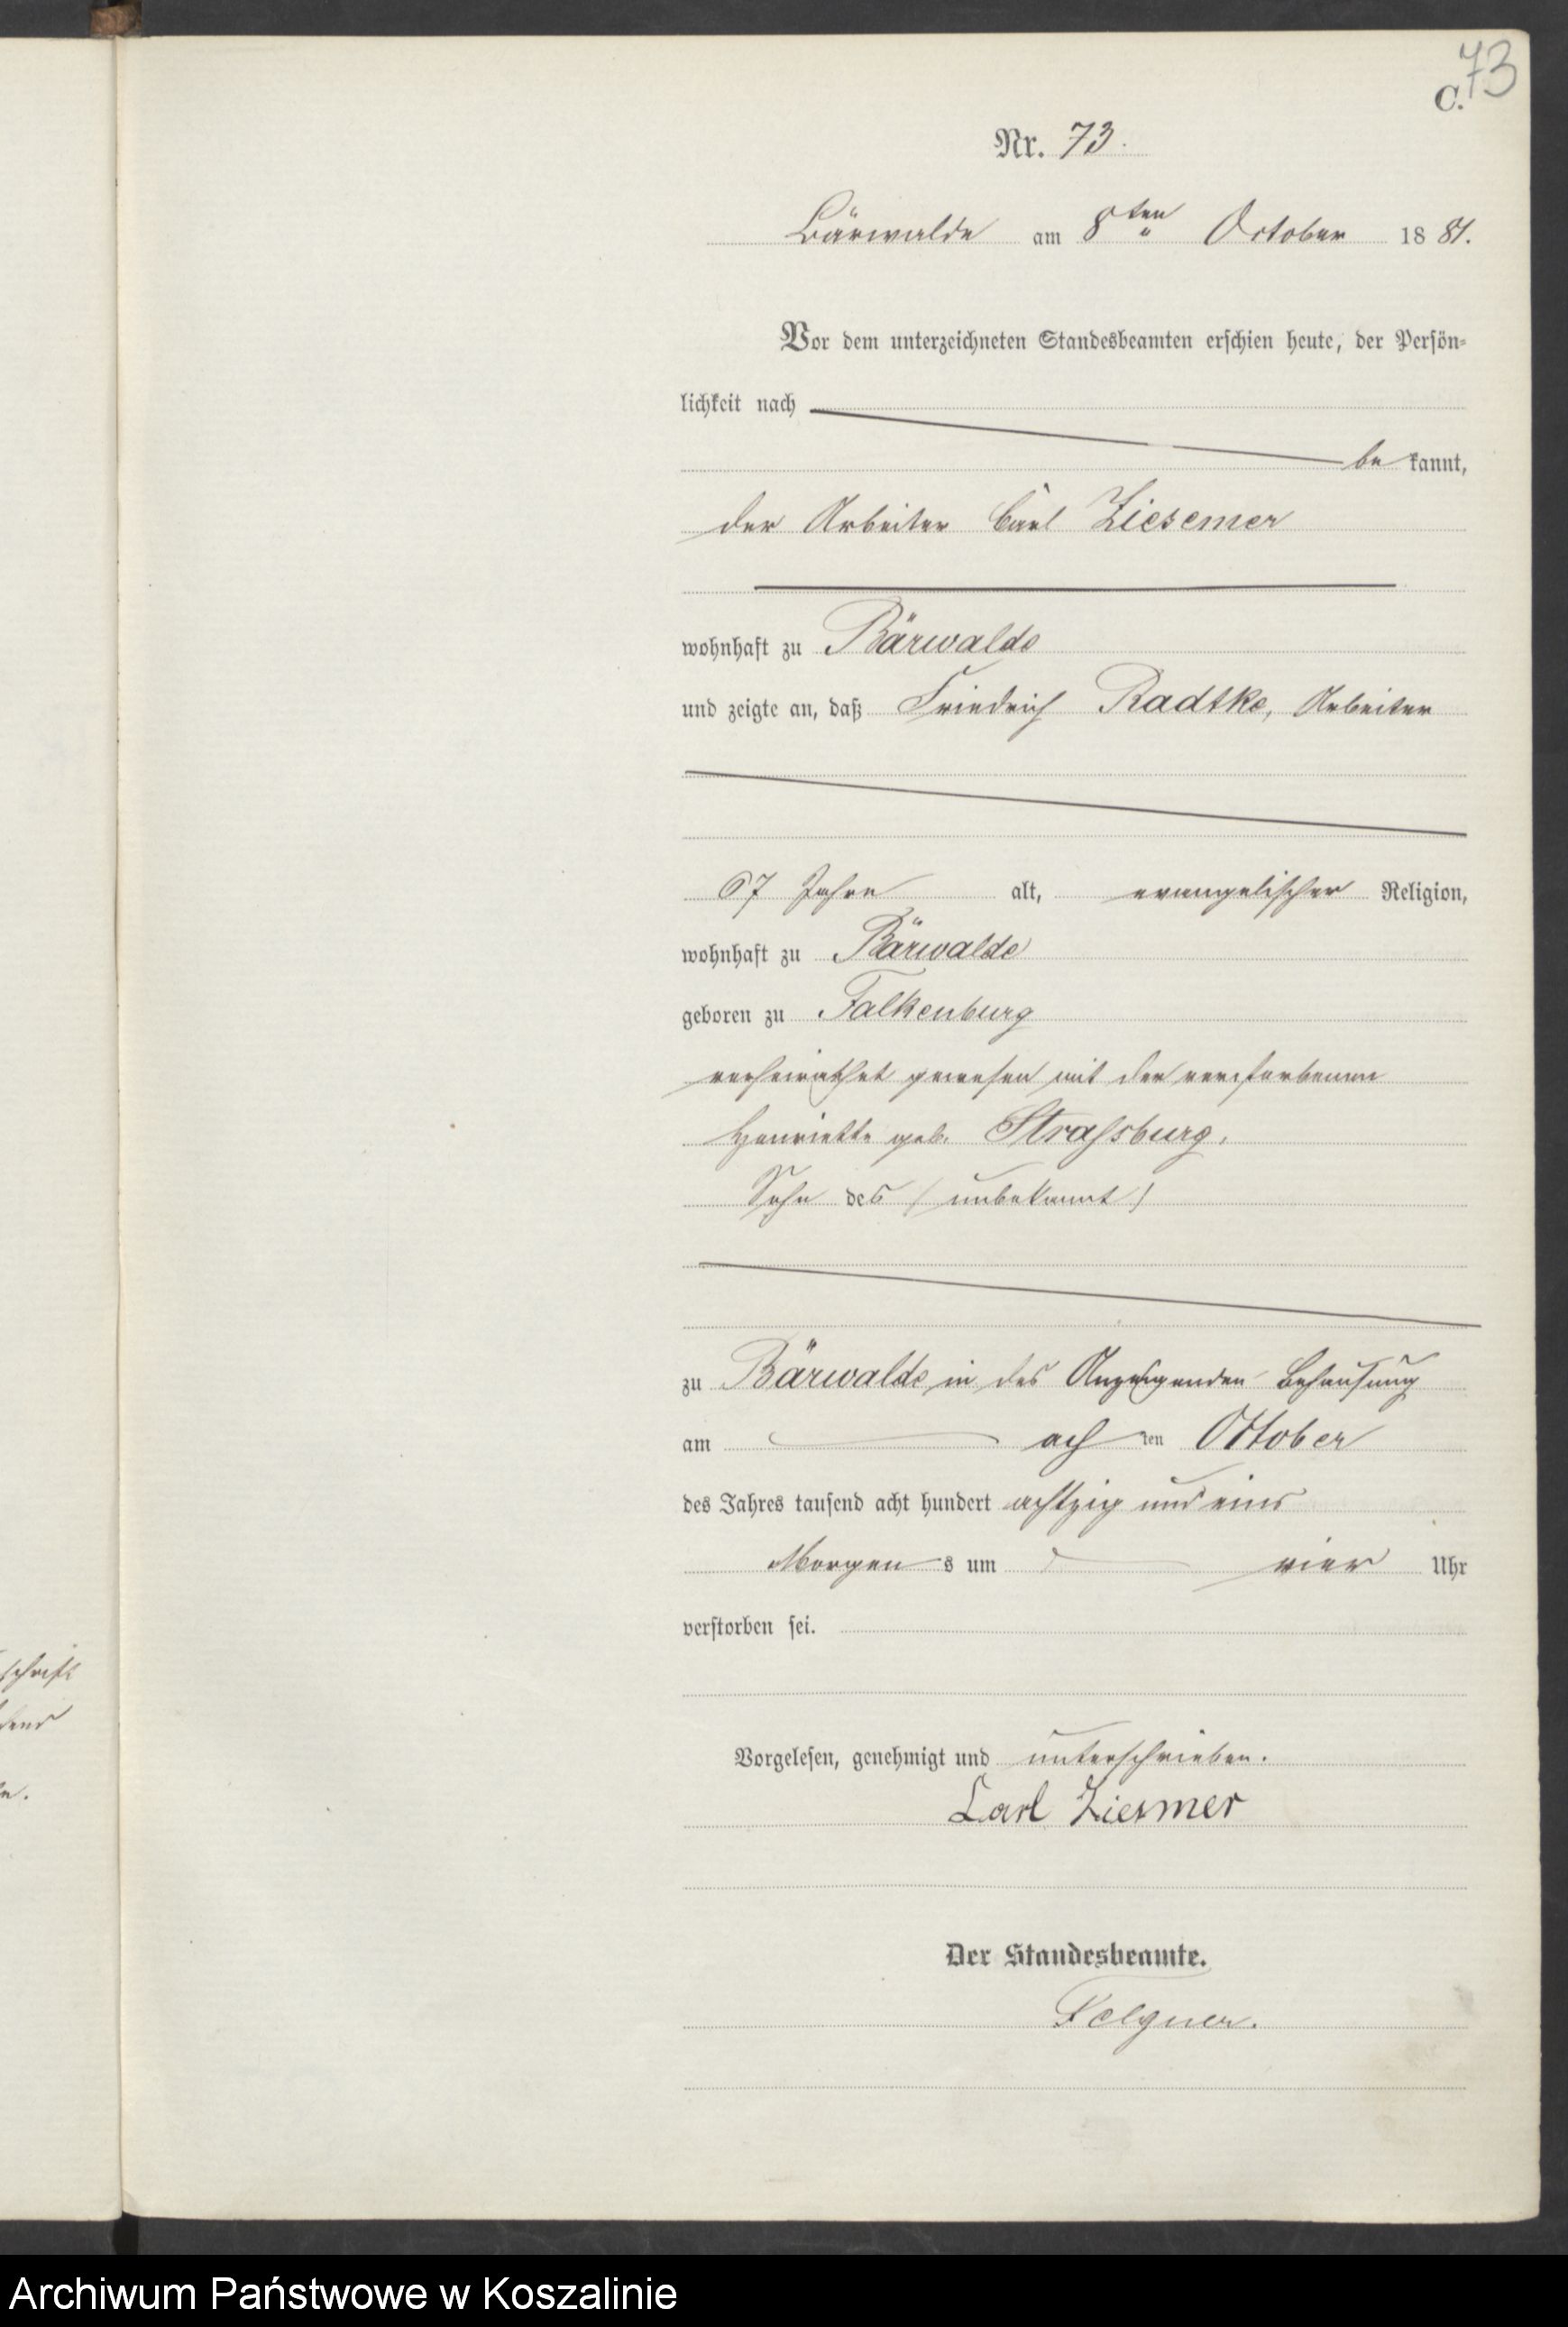 73
C.
Nr. 73.
Bärwalde am 8ten October 1881.
Vor dem unterzeichneten Standesbeamten erschien heute, der Persön-
lichkeit nach
bekannt,
der Arbeiter Carl Ziesemer
wohnhaft zu Bärwalde
und zeigte an, daß Friedrich Radtke, Arbeiter
67 Jahre alt, evangelischer Religion,
wohnhaft zu Bärwalde
geboren zu Falkenburg
verheirathet gewesen mit der verstorbenen
Henriette geb. Straſsburg.
Sohn des (unbekannt)
zu Bärwalde in des Anzeigenden Behausung
am achten October
des Jahres tausend acht hundert achtzig und eins
Morgens um vier Uhr
verstorben sei.
schrift
Vorgelesen, genehmigt und unterschrieben.
Carl Ziesmer
Der Standesbeamte.
Felgner.
Archiwum Państwowe w Koszalinie